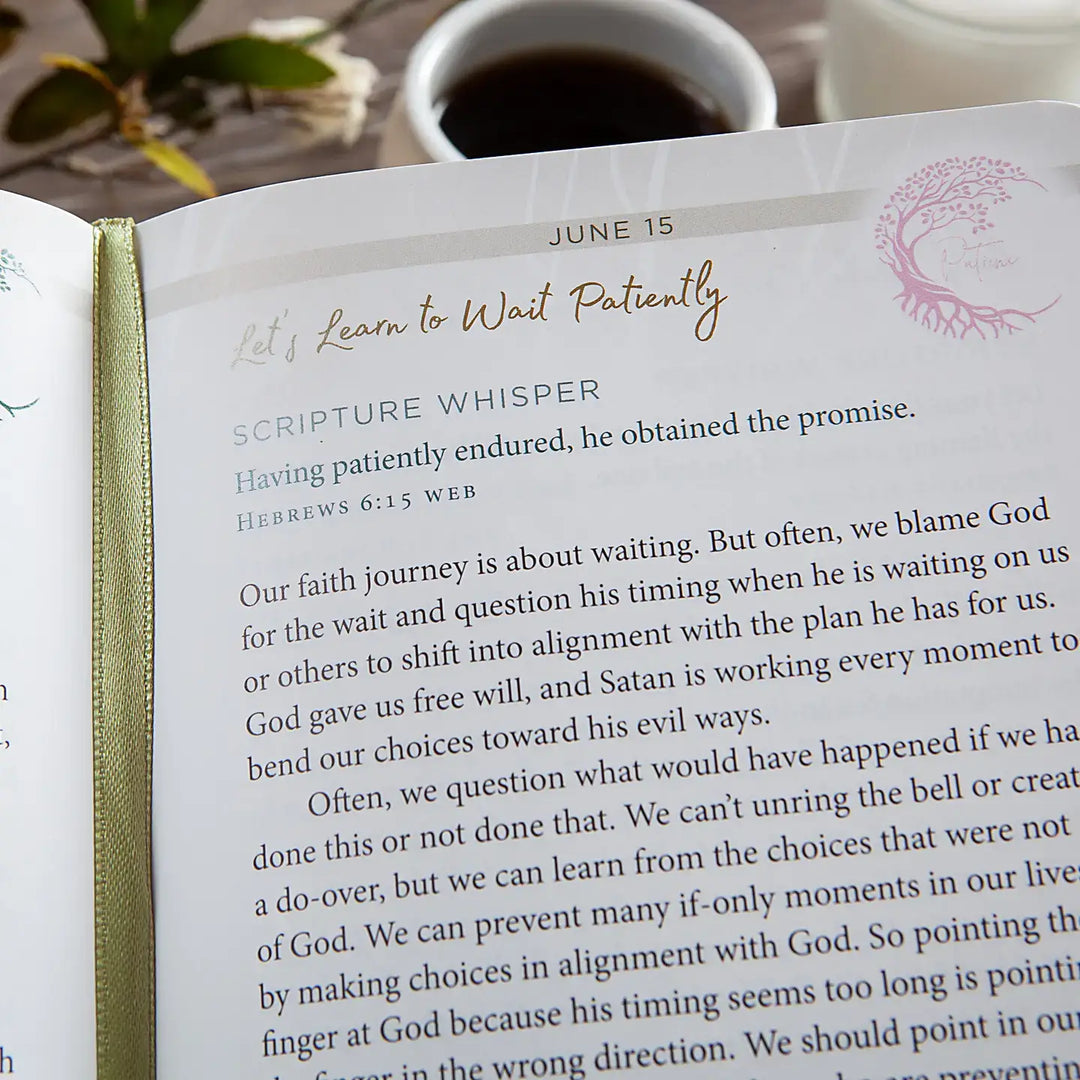 JUNE 15
Let's Learn to Wait Patiently
SCRIPTURE WHISPER
Having patiently endured, he obtained the promise.
HEBREWS 6:15 WEB
Our faith journey is about waiting. But often, we blame God
for the wait and question his timing when he is waiting on us
or others to shift into alignment with the plan he has for us.
God gave us free will, and Satan is working every moment to
bend our choices toward his evil ways.
Often, we question what would have happened if we ha
done this or not done that. We can't unring the bell or creat
a do-over, but we can learn from the choices that were not
of God. We can prevent many if-only moments in our lives
by making choices in alignment with God. So pointing the
finger at God because his timing seems too long is pointin
finger in the wrong direction. We should point in our
preventin